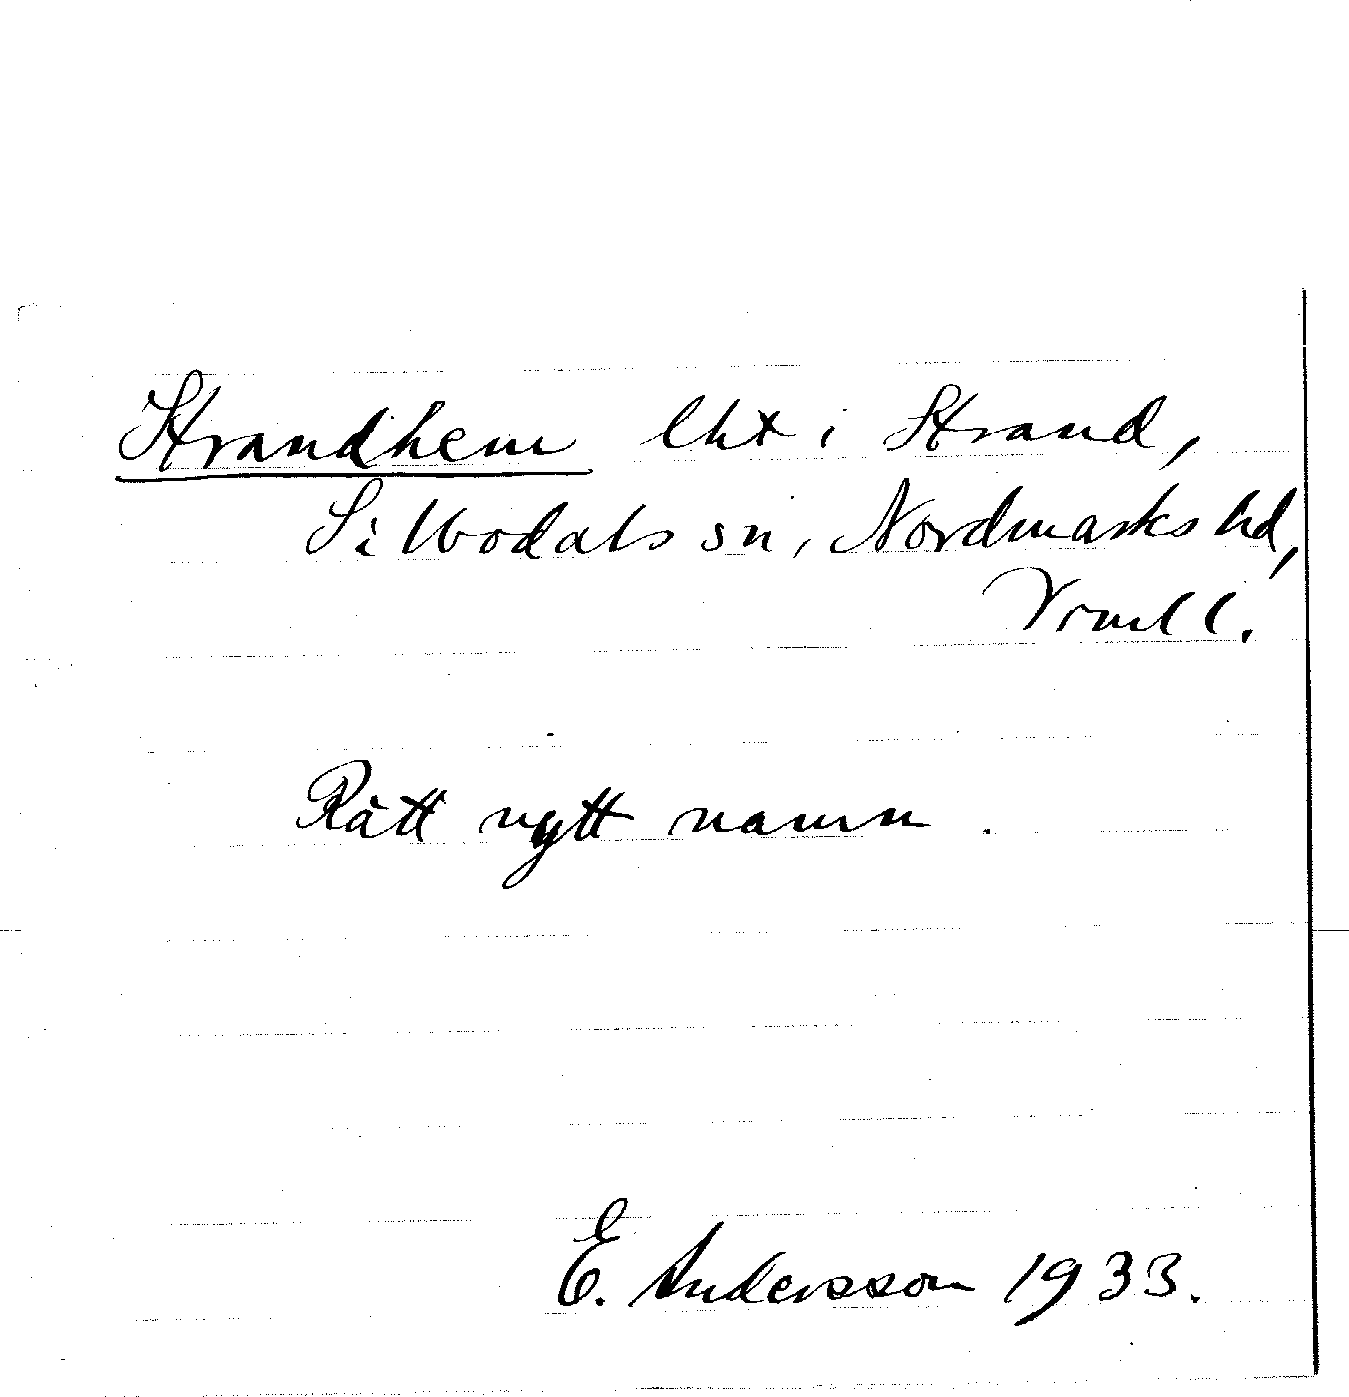 Strandhem lht i Strand,
Sillbodals sn, Nordmarks hd,
Vrml l.
Rätt nytt namn.
E. Andersson 1933.